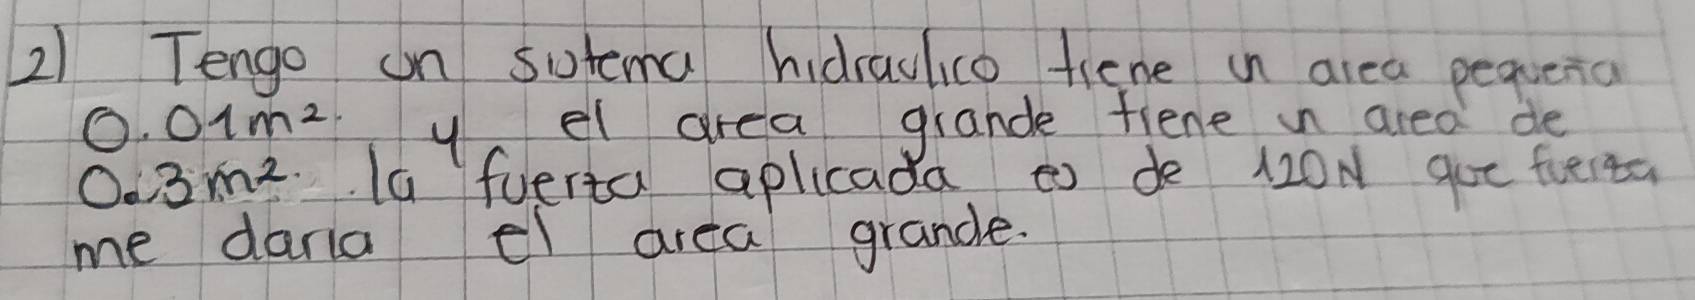 2) Tengo un sistema hidraulico tiene un area pequeña
0.01m². y el area grande tiene un area de
0.3m². la fuerza aplicada es de 120N que fuerza
me daria el area grande.